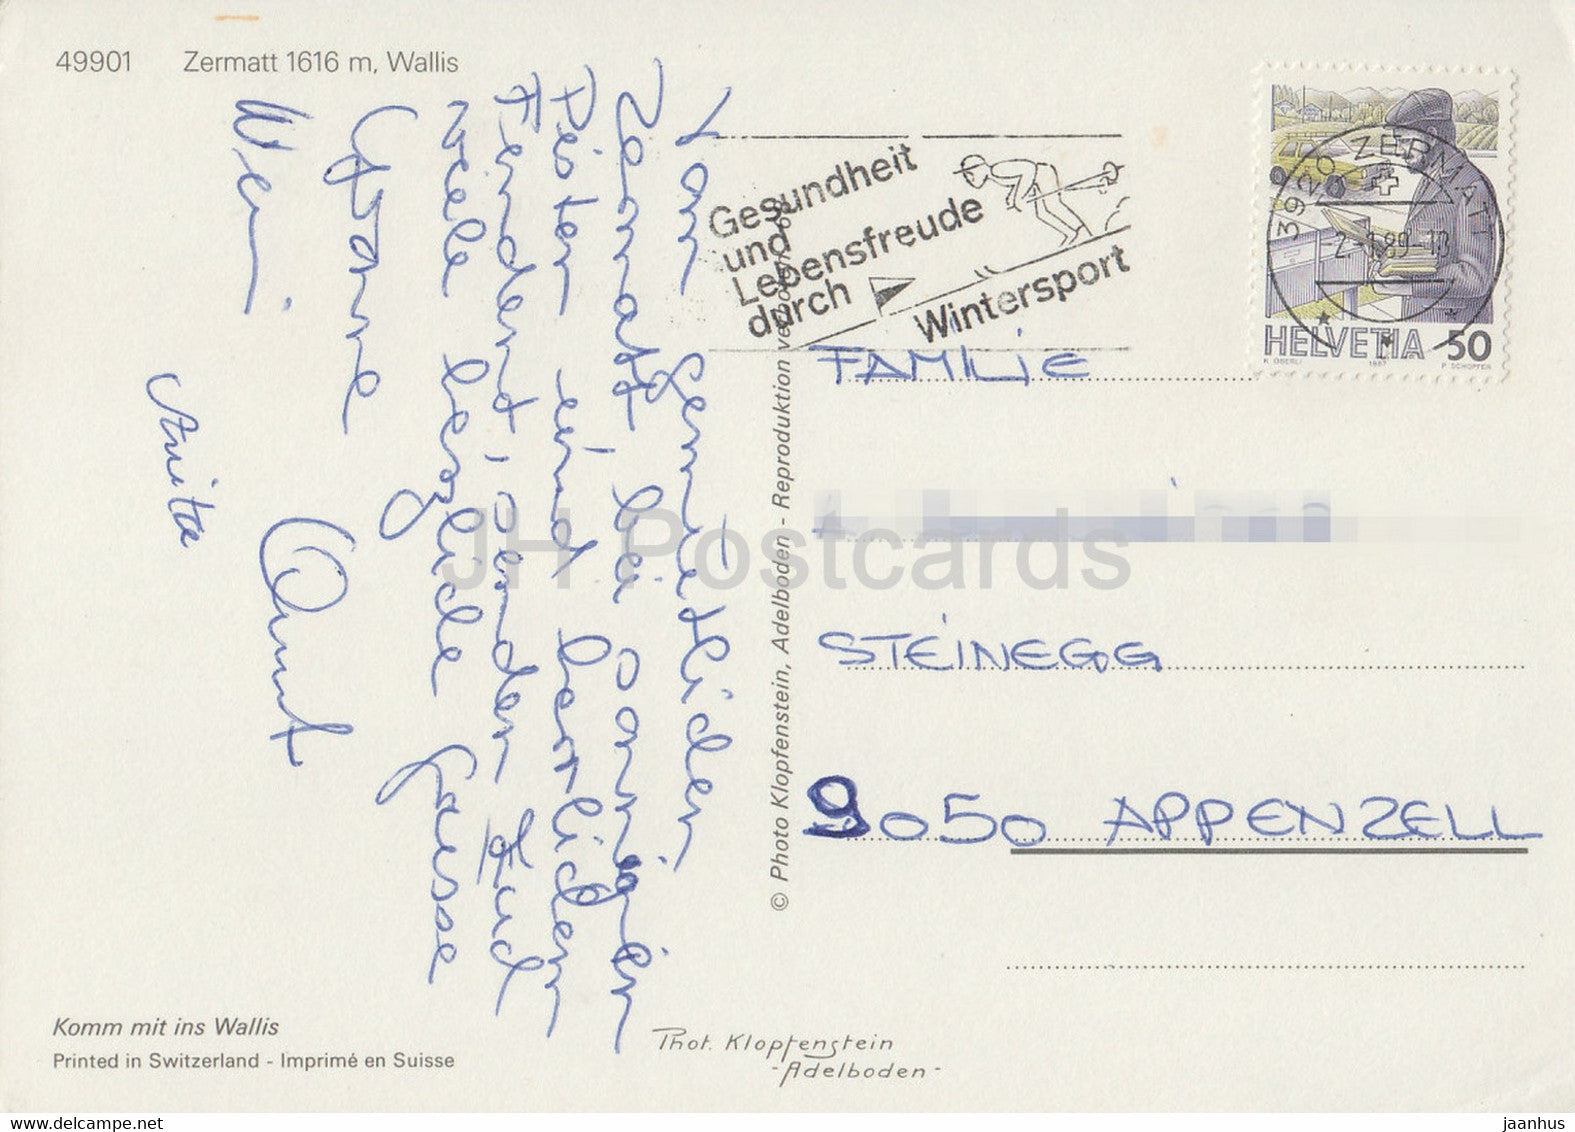 49901 Zermatt 1616 m, Wallis
Vom gemütlichen
Zermatt bei sonnigen
Pisten und herrlichem
senden Euch
viele herzliche Grüsse
Anita
Gesundheit
und
Lebensfreude
durch
Wintersport
3920 ZERMATT
HELVETIA 50
K. OBERLI 1987 P. SCHOPFER
FAMILIE
STEINEGG
9050 APPENZELL
© Photo Klopfenstein, Adelboden - Reproduktion verboten
JH Postcards
Komm mit ins Wallis
Printed in Switzerland - Imprimé en Suisse
Phot. Klopfenstein
- Adelboden -
www.delcampe.net
jaanhus